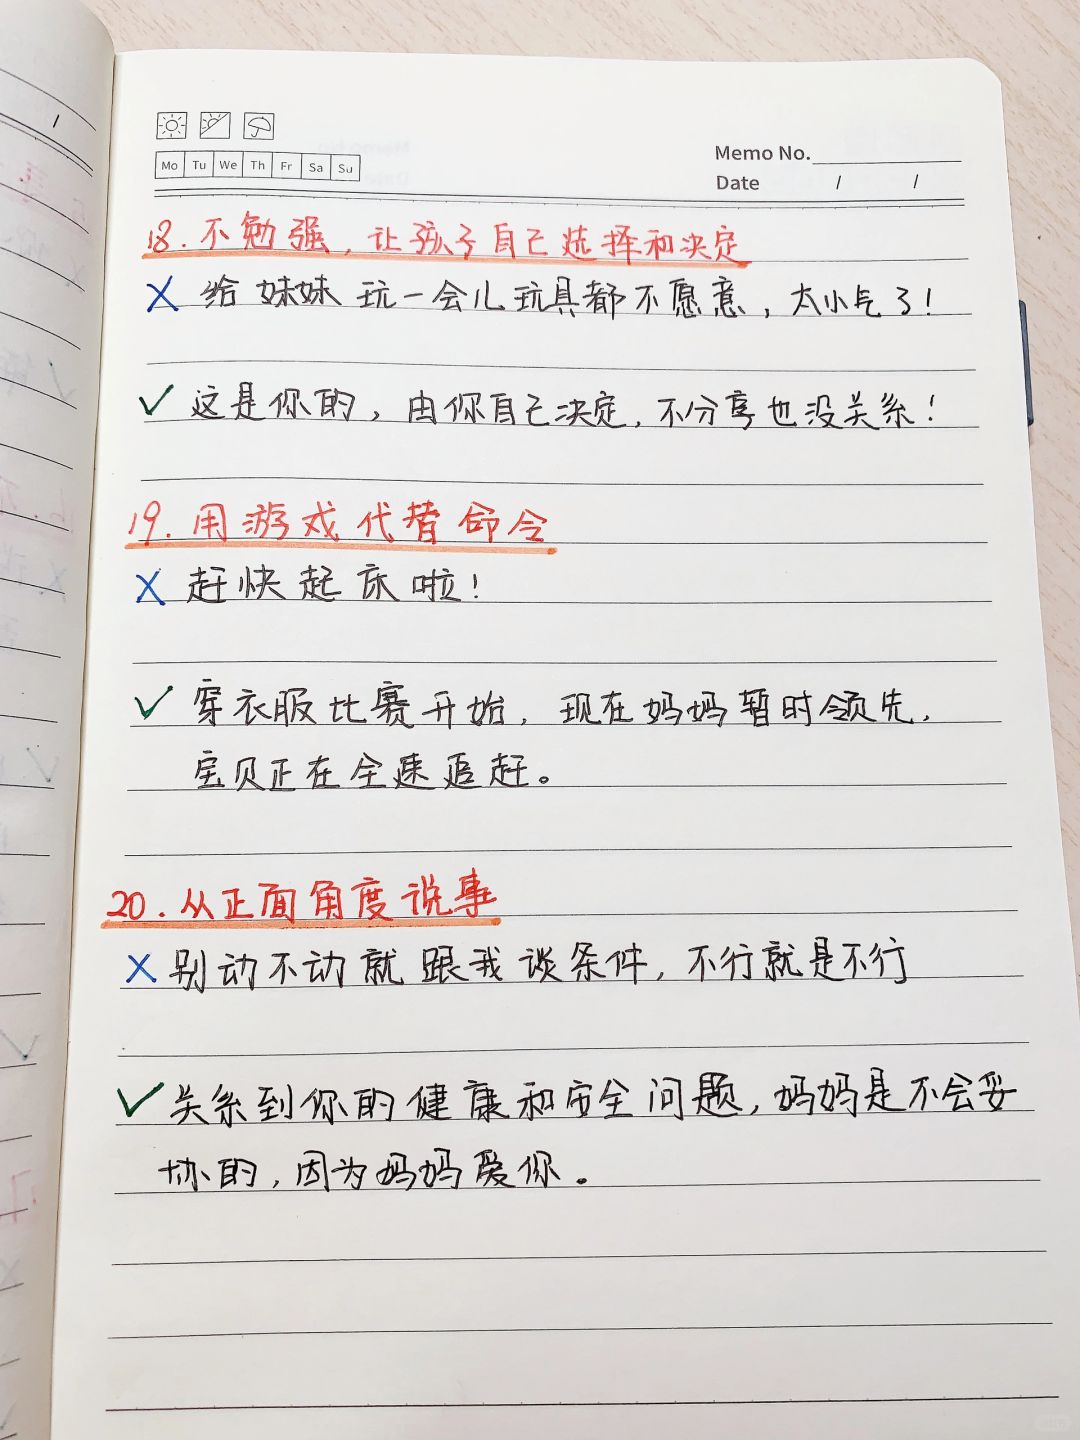 Mo Tu We Th Fr Sa Su
Memo No.
Date / /
18. 不勉强，让孩子自己选择和决定
X 给妹妹玩一会儿玩具都不愿意，太小气了！
✓ 这是你的，由你自己决定，不分享也没关系！
19. 用游戏代替命令
X 赶快起床啦！
✓ 穿衣服比赛开始，现在妈妈暂时领先，
宝贝正在全速追赶。
20. 从正面角度说事
X 别动不动就跟我谈条件，不行就是不行
✓ 关系到你的健康和安全问题，妈妈是不会妥
协的，因为妈妈爱你。